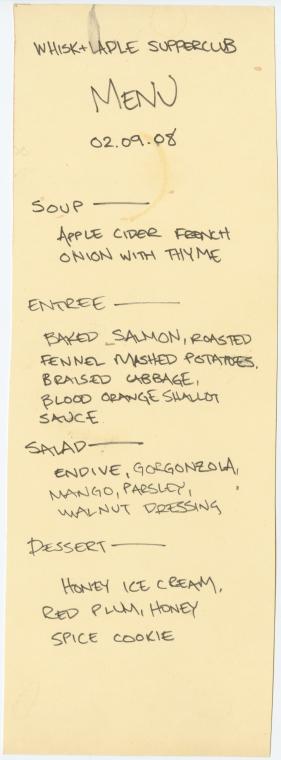 WHISK + LADLE SUPPERCLUB
MENU
02.09.08
SOUP —
APPLE CIDER FRENCH
ONION WITH THYME
ENTREE —
BAKED SALMON, ROASTED
FENNEL MASHED POTATOES,
BRAISED CABBAGE,
BLOOD ORANGE SHALLOT
SAUCE
SALAD —
ENDIVE, GORGONZOLA,
MANGO, PARSLEY,
WALNUT DRESSING
DESSERT —
HONEY ICE CREAM,
RED PLUM, HONEY
SPICE COOKIE